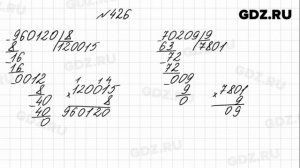 GDZ.RU
№426
-960120|8
8 |120015
-16
16
0012
-8
-40
40
0
1 4
×120015
8
960120
-70209|9
63 |7801
-72
72
009
-9
0
×7801
9
09
GDZ.RU